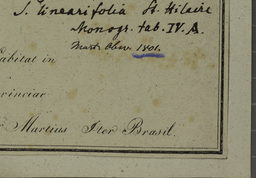 S. linearifolia St. Hilaire
Monogr. tab. IV. A.
Mart. Obser. 1801.
Habitat in
vinciae
Martius Iter Brasil.